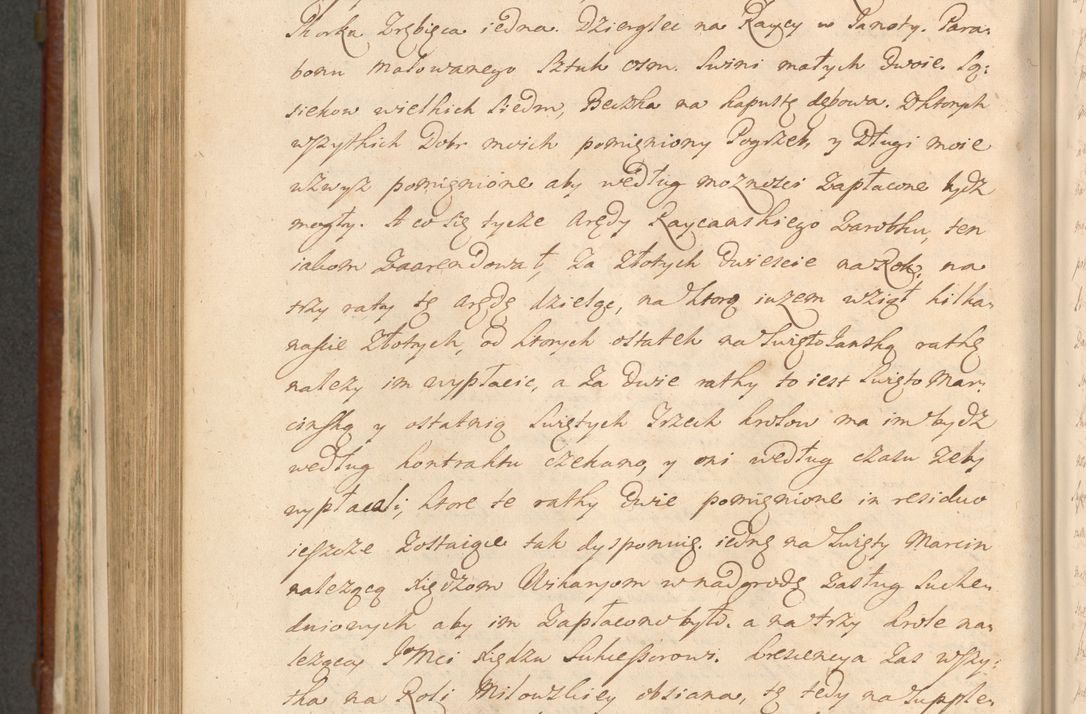 Skorka Zrębięca iedna. Dzierglec na Raycy w Janoty. Para-
bonu malowanego Sztuk osm. Swini małych dwoie. Są-
siekow wielkich siedm, Beczka na kapustę dębowa. Zktorych
wszytkich Dobr moich pomięniony Pogrzeb, y Długi moie
wzwyz pomięnione aby według moznosci zapłacone bydz
mogły. A co się tycze Arędy Raycanskiego Zarobku, ten
iakom Zaarendował, za Złotych dwiescie na Rok, na
trzy raty tę Arędę dzielgc, na ktorą iuzem wziął kilka-
nascie Złotych, od ktorych ostatek na Swięto Janską rathę
nalezy im wypłacic, a za dwie rathy to iest Swięto Mar-
cinską y ostatnią Swiętych Trzech krolow ma im bydz
według kontraktu czekano, y oni według czasu zeby
wypłacali, ktore te rathy dwie pomięnione in residuo
ieszcze zostaigce tak dysponuię. iednę na Swięty Marcin
nalezącą Xiędzom Wikaryom w nadgrodę zasług Suche-
dniowych aby im zapłacono było. a na trzy krole na-
lezącą Jo Mci Xiędzu Sukcessorowi. Crescencya zas wszy-
tka na Roli Milowskiey obsiana, tę tedy na Supple-